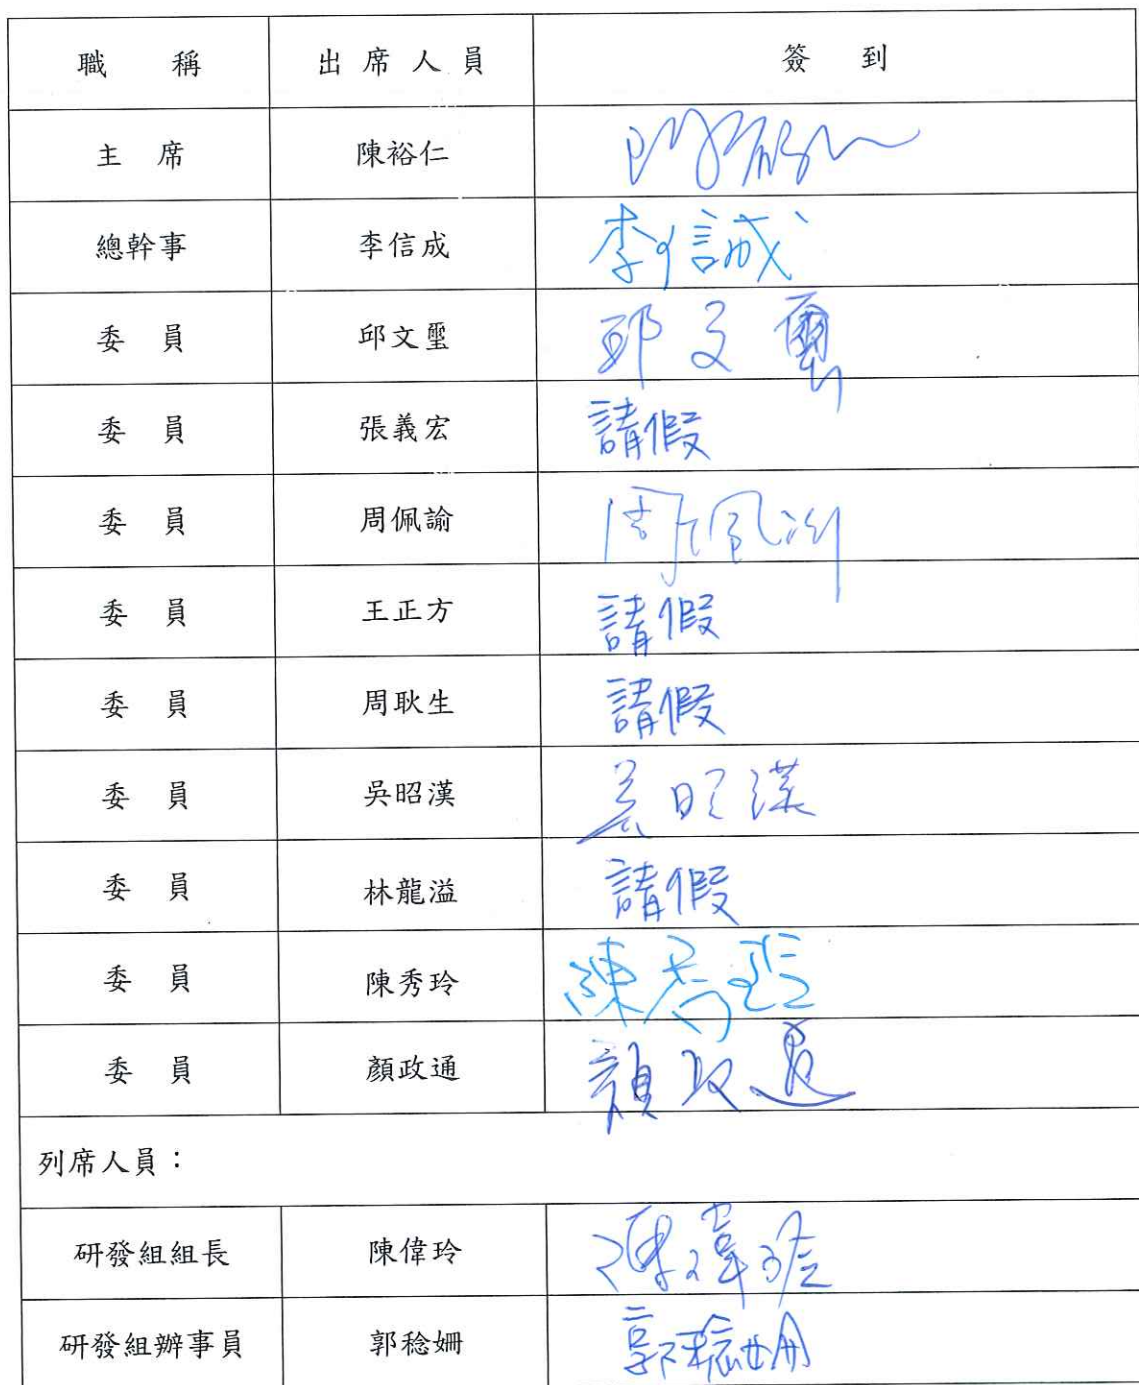 職 稱 出席人員 簽 到
主 席 陳裕仁
總幹事 李信成 李信誠
委 員 邱文璽 邱文璽
委 員 張義宏 請假
委 員 周佩諭 周佩渝
委 員 王正方 請假
委 員 周耿生 請假
委 員 吳昭漢 吳昭漢
委 員 林龍溢 請假
委 員 陳秀玲 陳秀玲
委 員 顏政通 顏政通
列席人員：
研發組組長 陳偉玲 陳偉玲
研發組辦事員 郭稔姍 郭稔姍